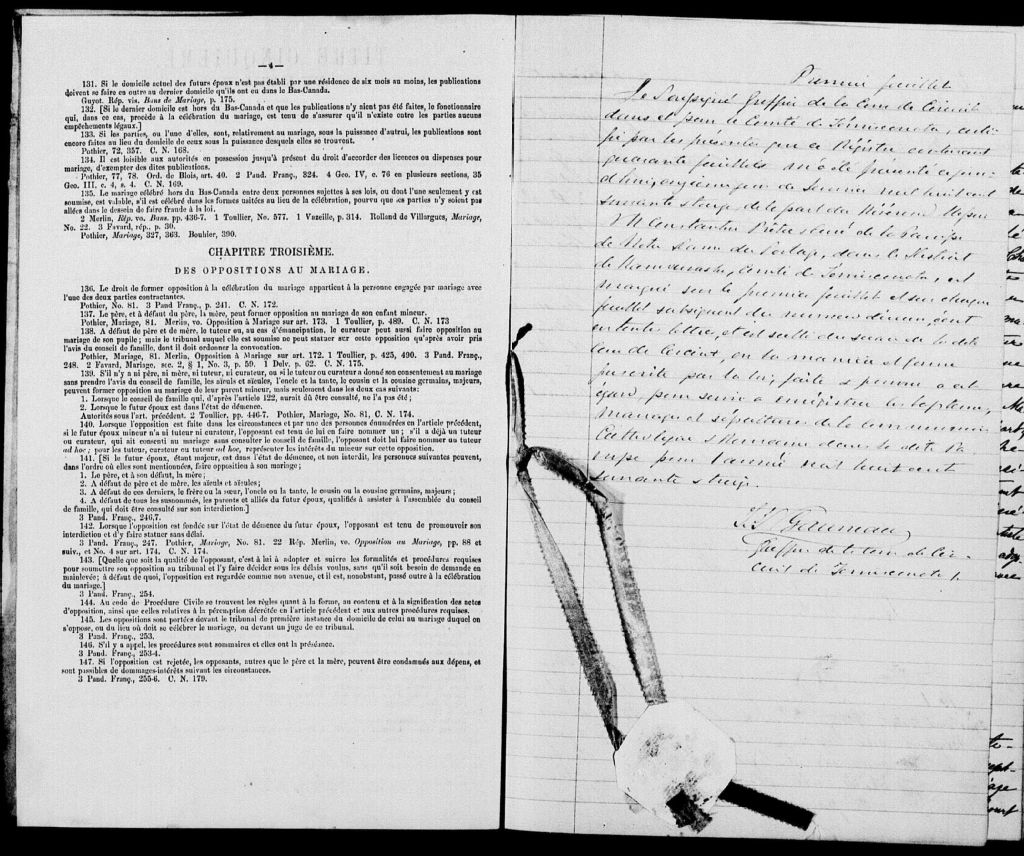 —4—
131. Si le domicile actuel des futurs époux n'est pas établi par une résidence de six mois au moins, les publications
doivent se faire en outre au dernier domicile qu'ils ont eu dans le Bas-Canada.
Guyot. Rép. vis. Bans de Mariage, p. 175.
132. [Si le dernier domicile est hors du Bas-Canada et que les publications n'y aient pas été faites, le fonctionnaire
qui, dans ce cas, procède à la célébration du mariage, est tenu de s'assurer qu'il n'existe entre les parties aucuns
empêchements légaux.]
133. Si les parties, ou l'une d'elles, sont, relativement au mariage, sous la puissance d'autrui, les publications sont
encore faites au lieu du domicile de ceux sous la puissance desquels elles se trouvent.
Pothier, 72, 357. C. N. 168.
134. Il est loisible aux autorités en possession jusqu'à présent du droit d'accorder des licences ou dispenses pour
mariage, d'exempter des dites publications.
Pothier, 77, 78. Ord. de Blois, art. 40. 2 Pand. Franç., 324. 4 Geo. IV, c. 76 en plusieurs sections, 35
Geo. III. c. 4, s. 4. C. N. 169.
135. Le mariage célébré hors du Bas-Canada entre deux personnes sujettes à ses lois, ou dont l'une seulement y est
soumise, est valable, s'il est célébré dans les formes usitées au lieu de la célébration, pourvu que les parties n'y soient pas
allées dans le dessein de faire fraude à la loi.
2 Merlin, Rép. vo. Bans. pp. 436-7. 1 Toullier, No. 577. 1 Vazeille, p. 314. Rolland de Villargues, Mariage,
No. 22. 3 Favard, rép., p. 30.
Pothier, Mariage, 327, 363. Bouhier, 390.
CHAPITRE TROISIÈME.
DES OPPOSITIONS AU MARIAGE.
136. Le droit de former opposition à la célébration du mariage appartient à la personne engagée par mariage avec
l'une des deux parties contractantes.
Pothier, No. 81. 3 Pand Franç., p. 241. C. N. 172.
137. Le père, et à défaut du père, la mère, peut former opposition au mariage de son enfant mineur.
Pothier, Mariage, 81. Merlin, vo. Opposition à Mariage sur art. 173. 1 Toullier, p. 489. C. N. 173
138. A défaut de père et de mère, le tuteur ou, au cas d'émancipation, le curateur peut aussi faire opposition au
mariage de son pupille; mais le tribunal auquel elle est soumise ne peut statuer sur cette opposition qu'après avoir pris
l'avis du conseil de famille, dont il doit ordonner la convocation.
Pothier, Mariage, 81. Merlin, Opposition à Mariage sur art. 172. 1 Toullier, p. 425, 490. 3 Pand. Franç.,
248. 2 Favard, Mariage, sec. 2, § 1, No. 3, p. 59. 1 Delv. p. 62. C. N. 175.
139. S'il n'y a ni père, ni mère, ni tuteur, ni curateur, ou si le tuteur ou curateur a donné son consentement au mariage
sans prendre l'avis du conseil de famille, les aïeuls et aïeules, l'oncle et la tante, le cousin et la cousine germains, majeurs,
peuvent former opposition au mariage de leur parent mineur, mais seulement dans les deux cas suivants:
1. Lorsque le conseil de famille qui, d'après l'article 122, aurait dû être consulté, ne l'a pas été;
2. Lorsque le futur époux est dans l'état de démence.
Autorités sous l'art. précédent. 2 Toullier, pp. 446-7. Pothier, Mariage, No. 81, C. N. 174.
140. Lorsque l'opposition est faite dans les circonstances et par une des personnes énumérées en l'article précédent,
si le futur époux mineur n'a ni tuteur ni curateur, l'opposant est tenu de lui en faire nommer un; s'il a déjà un tuteur
ou curateur, qui ait consenti au mariage sans consulter le conseil de famille, l'opposant doit lui faire nommer un tuteur
ad hoc; pour les tuteur, curateur ou tuteur ad hoc, représenter les intérêts du mineur sur cette opposition.
141. [Si le futur époux, étant majeur, est dans l'état de démence, et non interdit, les personnes suivantes peuvent,
dans l'ordre où elles sont mentionnées, faire opposition à son mariage;
1. Le père, et à son défaut, la mère;
2. A défaut de père et de mère, les aïeuls et aïeules;
3. A défaut de ces derniers, le frère ou la sœur, l'oncle ou la tante, le cousin ou la cousine germains, majeurs;
4. A défaut de tous les susnommés, les parents et alliés du futur époux, qualifiés à assister à l'assemblée du conseil
de famille, qui doit être consulté sur son interdiction.]
3 Pand. Franç., 246,7.
142. Lorsque l'opposition est fondée sur l'état de démence du futur époux, l'opposant est tenu de promouvoir son
interdiction et d'y faire statuer sans délai.
3 Pand. Franç., 247. Pothier, Mariage, No. 81. 22 Rép. Merlin, vo. Opposition au Mariage, pp. 88 et
suiv., et No. 4 sur art. 174. C. N. 174.
143. [Quelque que soit la qualité de l'opposant, c'est à lui à adopter et suivre les formalités et procédures requises
pour soumettre son opposition au tribunal et l'y faire décider sous les délais voulus, sans qu'il soit besoin de demande en
mainlevée; à défaut de quoi, l'opposition est regardée comme non avenue, et il est, nonobstant, passé outre à la célébration
du mariage.]
3 Pand. Franç., 254.
144. Au code de Procédure Civile se trouvent les règles quant à la forme, au contenu et à la signification des actes
d'opposition, ainsi que celles relatives à la péremption décrétée en l'article précédent et aux autres procédures requises.
145. Les oppositions sont portées devant le tribunal de première instance du domicile de celui au mariage duquel on
s'oppose, ou du lieu où doit se célébrer le mariage, ou devant un juge de ce tribunal.
3 Pand. Franç., 253.
146. S'il y a appel, les procédures sont sommaires et elles ont la préséance.
3 Pand. Franç., 253-4.
147. Si l'opposition est rejetée, les opposants, autres que le père et la mère, peuvent être condamnés aux dépens, et
sont passibles de dommages-intérêts suivant les circonstances.
3 Pand. Franç., 255-6. C. N. 179.
Premier feuillet
Je Soussigné Greffier de la Cour de Circuit
dans et pour le Comté de Témiscouata, certi-
fie par les présentes que ce Registre contenant
quarante feuillets m'a été présenté aujour-
d'hui, jour de Janvier mil huit cent
soixante de la part du Révérend Messire
Constantin curé de la Paroisse
de Notre Dame du Portage, dans le District
de Kamouraska, Comté de Témiscouata, est
marqué sur le premier feuillet et sur chaque
feuillet subséquent du numéro écrit
en toute lettre, et est scellé du sceau de la dite
Cour de Circuit, en la manière et forme
prescrite par la loi, faite et pourvue à cet
égard, pour servir à enrégistrer les baptêmes,
mariages et sépultures de la communion
Catholique Romaine dans la dite Pa-
roisse pour l'année mil huit cent
soixante
Greffier de la Cour de Cir-
cuit de Témiscouata